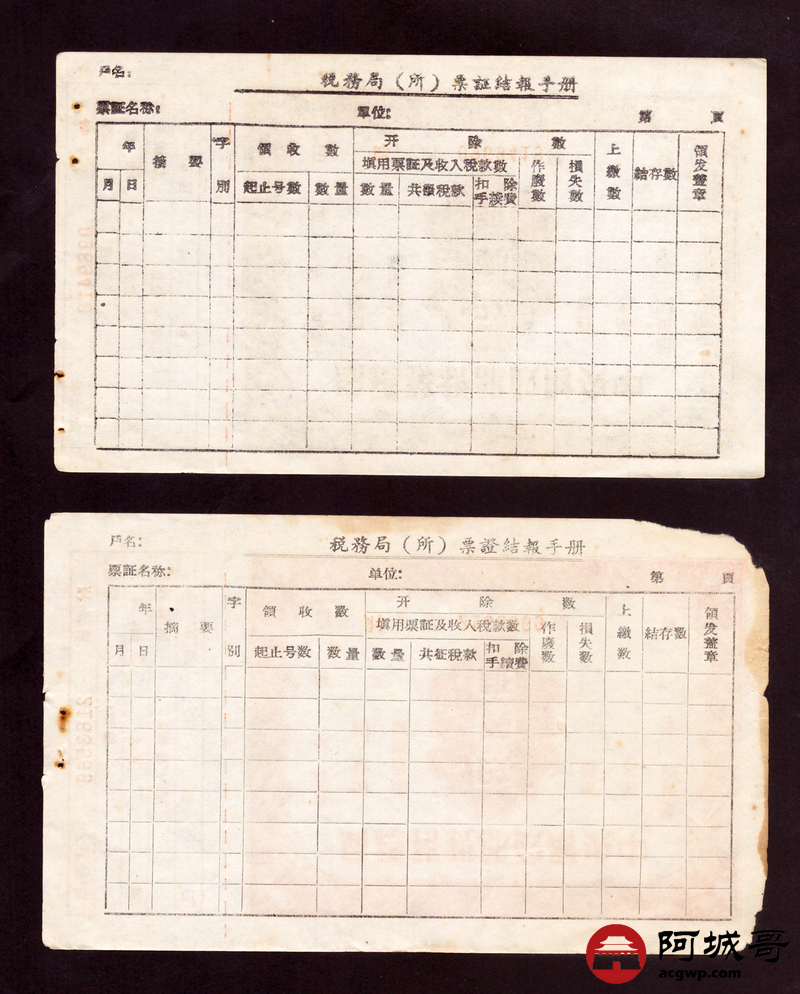 戶名:
稅務局（所）票証結報手册
票証名称:
單位:
第 頁
年
月
日
摘 要
字別
領 收 數
起止号數
數量
开 除 數
填用票証及收入稅款數
數量
共 稅款
扣 除
手 費
作廢數
損失數
上繳數
結存數
領发蓋章
戶名:
稅務局（所）票證結報手册
票証名称:
單位:
第 頁
年
月
日
摘 要
字別
領 收 數
起止号數
數量
开 除 數
填用票証及收入稅款數
數量
共征稅款
扣 除
手續費
作廢數
損失數
上繳數
結存數
領发蓋章
阿城哥
acgwp.com